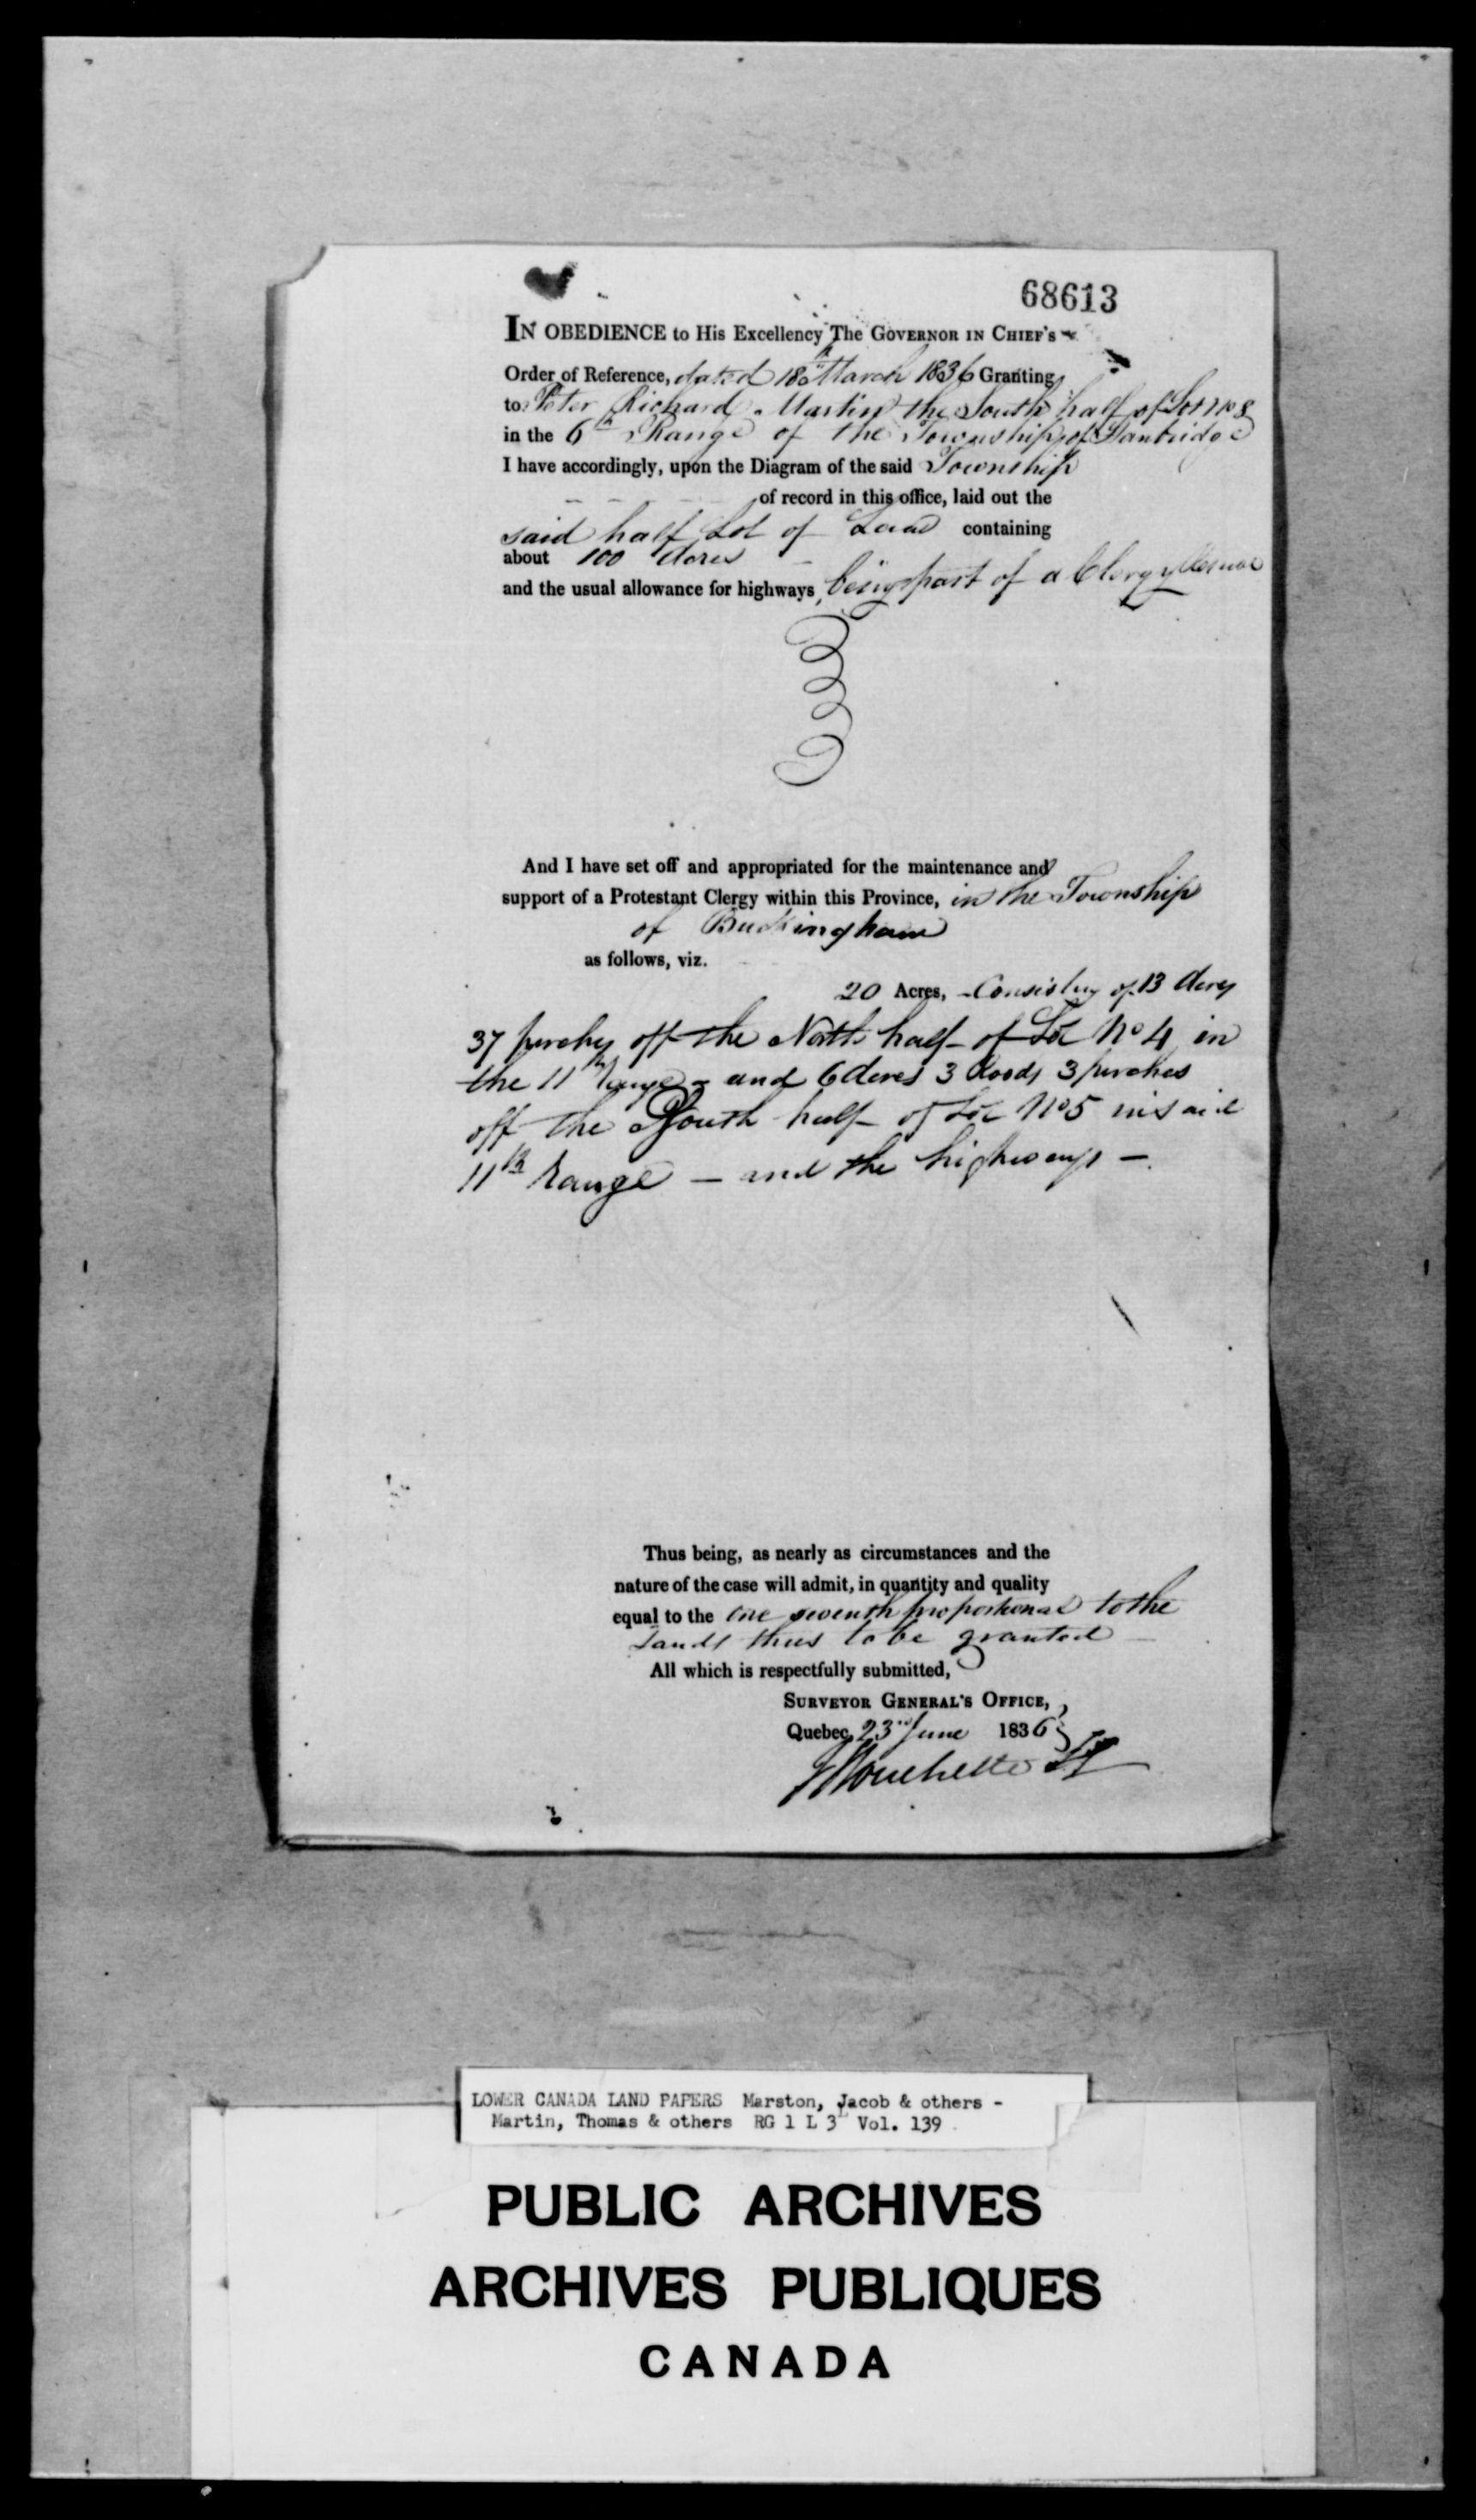 68613
IN OBEDIENCE to His Excellency The GOVERNOR IN CHIEF'S
Order of Reference, dated 18th March 1836 Granting
to Peter Richard Martin the South half of Lot No 8
in the 6th Range of the Township of Stanbridge
I have accordingly, upon the Diagram of the said Township
of record in this office, laid out the
said half Lot of Land containing
about 100 Acres
and the usual allowance for highways, being part of a Clergy Reserve
And I have set off and appropriated for the maintenance and
support of a Protestant Clergy within this Province, in the Township
of Buckingham
as follows, viz.
20 Acres, - Consisting of 13 Acres
37 perches off the North half of Lot No 4 in
the 11th Range - and 6 Acres 3 Roods 3 perches
off the South half of Lot No 5 in said
11th Range - and the highways -
Thus being, as nearly as circumstances and the
nature of the case will admit, in quantity and quality
equal to the one seventh proportional to the
Lands thus to be granted
All which is respectfully submitted,
SURVEYOR GENERAL'S OFFICE,
Quebec, 23rd June 1836
J Bouchette
LOWER CANADA LAND PAPERS Marston, Jacob & others -
Martin, Thomas & others RG 1 L 3L Vol. 139
PUBLIC ARCHIVES
ARCHIVES PUBLIQUES
CANADA